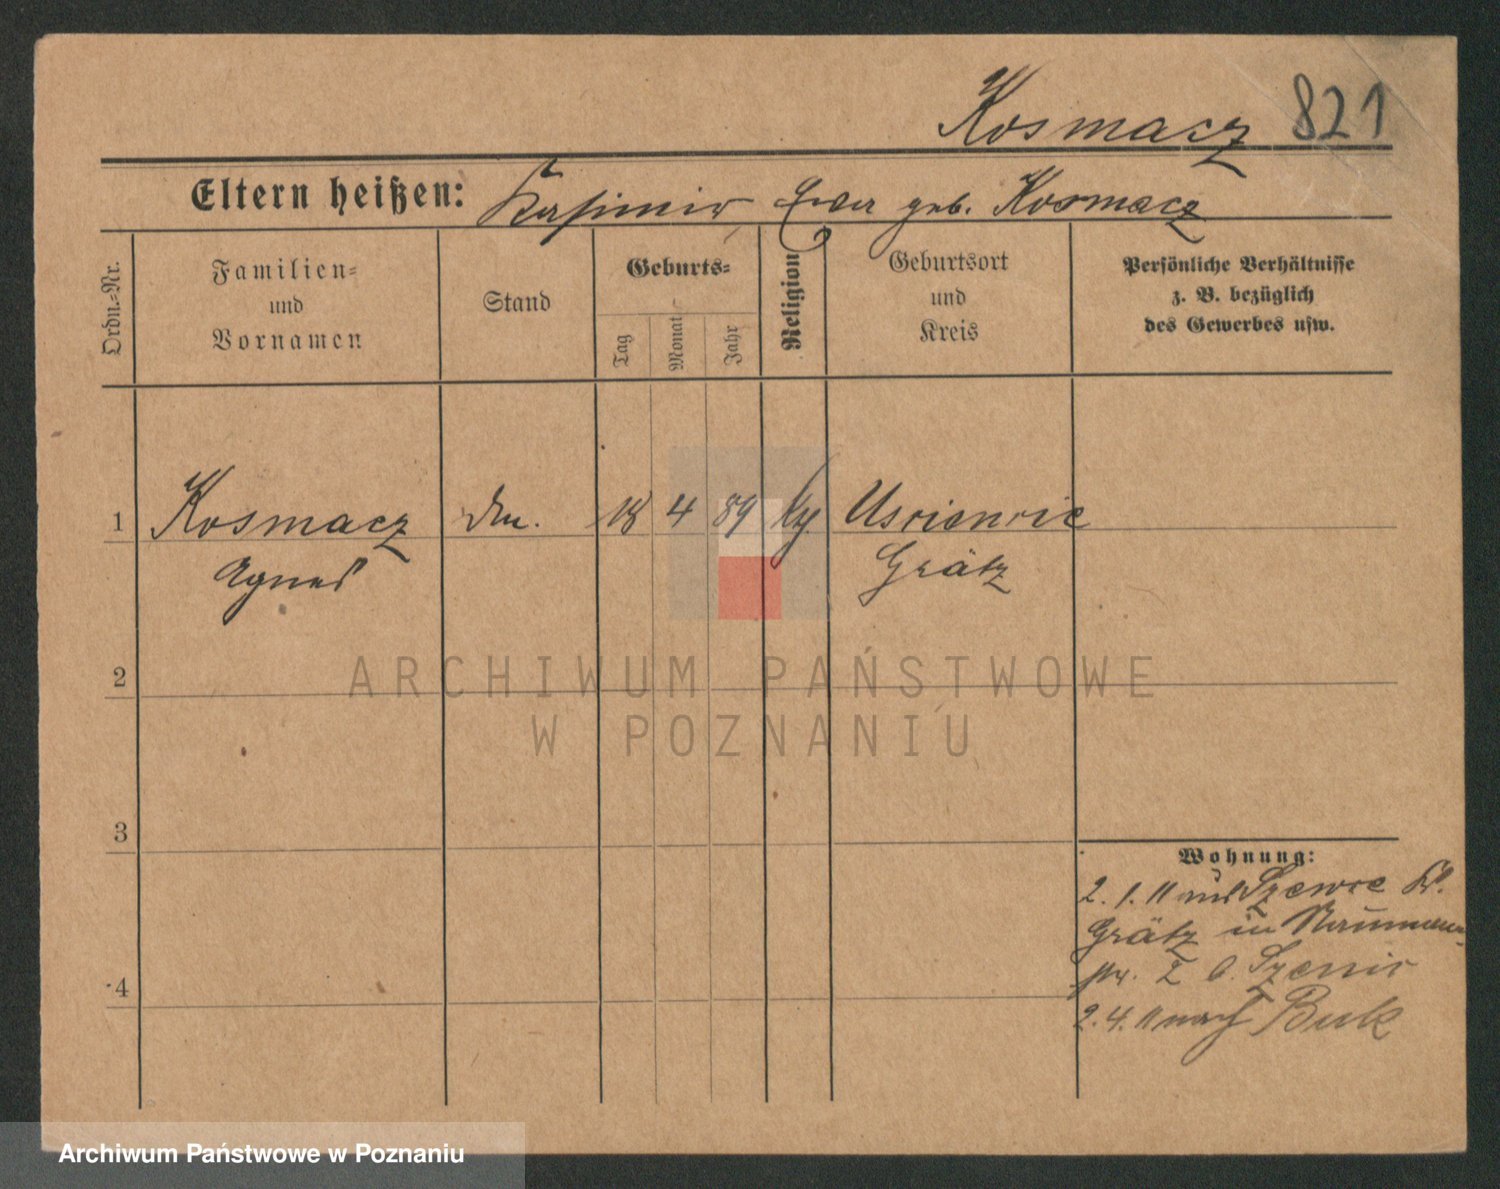 Kosmacz 821
Eltern heißen: Kasimir Ewa geb. Kosmacz
Ordn.-Nr.
Familien-
und
Vornamen
Stand
Geburts-
Tag
Monat
Jahr
Religion
Geburtsort
und
Kreis
Persönliche Verhältnisse
z. B. bezüglich
des Gewerbes usw.
1 Kosmacz 18 4 89
Agnes Grätz
2
ARCHIWUM PAŃSTWOWE
W POZNANIU
3
Wohnung:
2. 1. 11 aus Szewce Kr.
Grätz in Naumann-
str. 2 b.
4
2. 4. 11 nach Buk
Archiwum Państwowe w Poznaniu